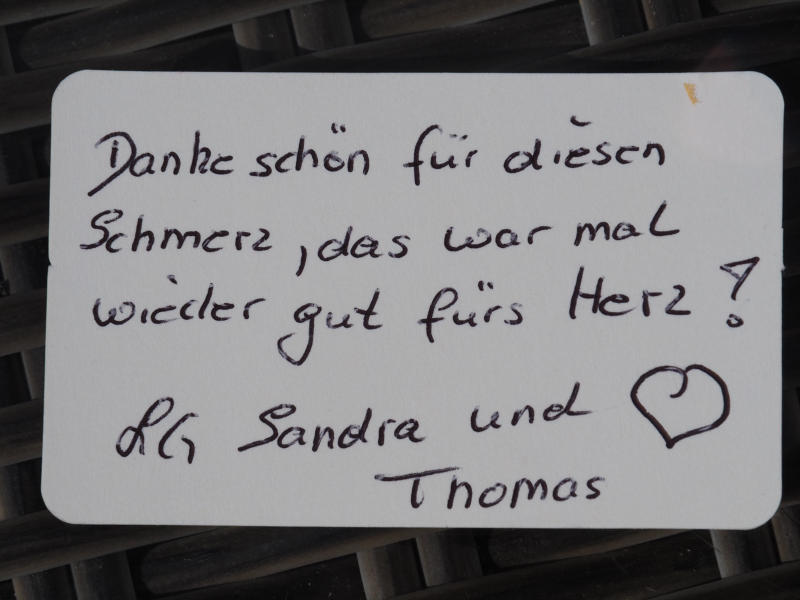 Danke schön für diesen
Schmerz, das war mal
wieder gut fürs Herz!
LG Sandra und
Thomas